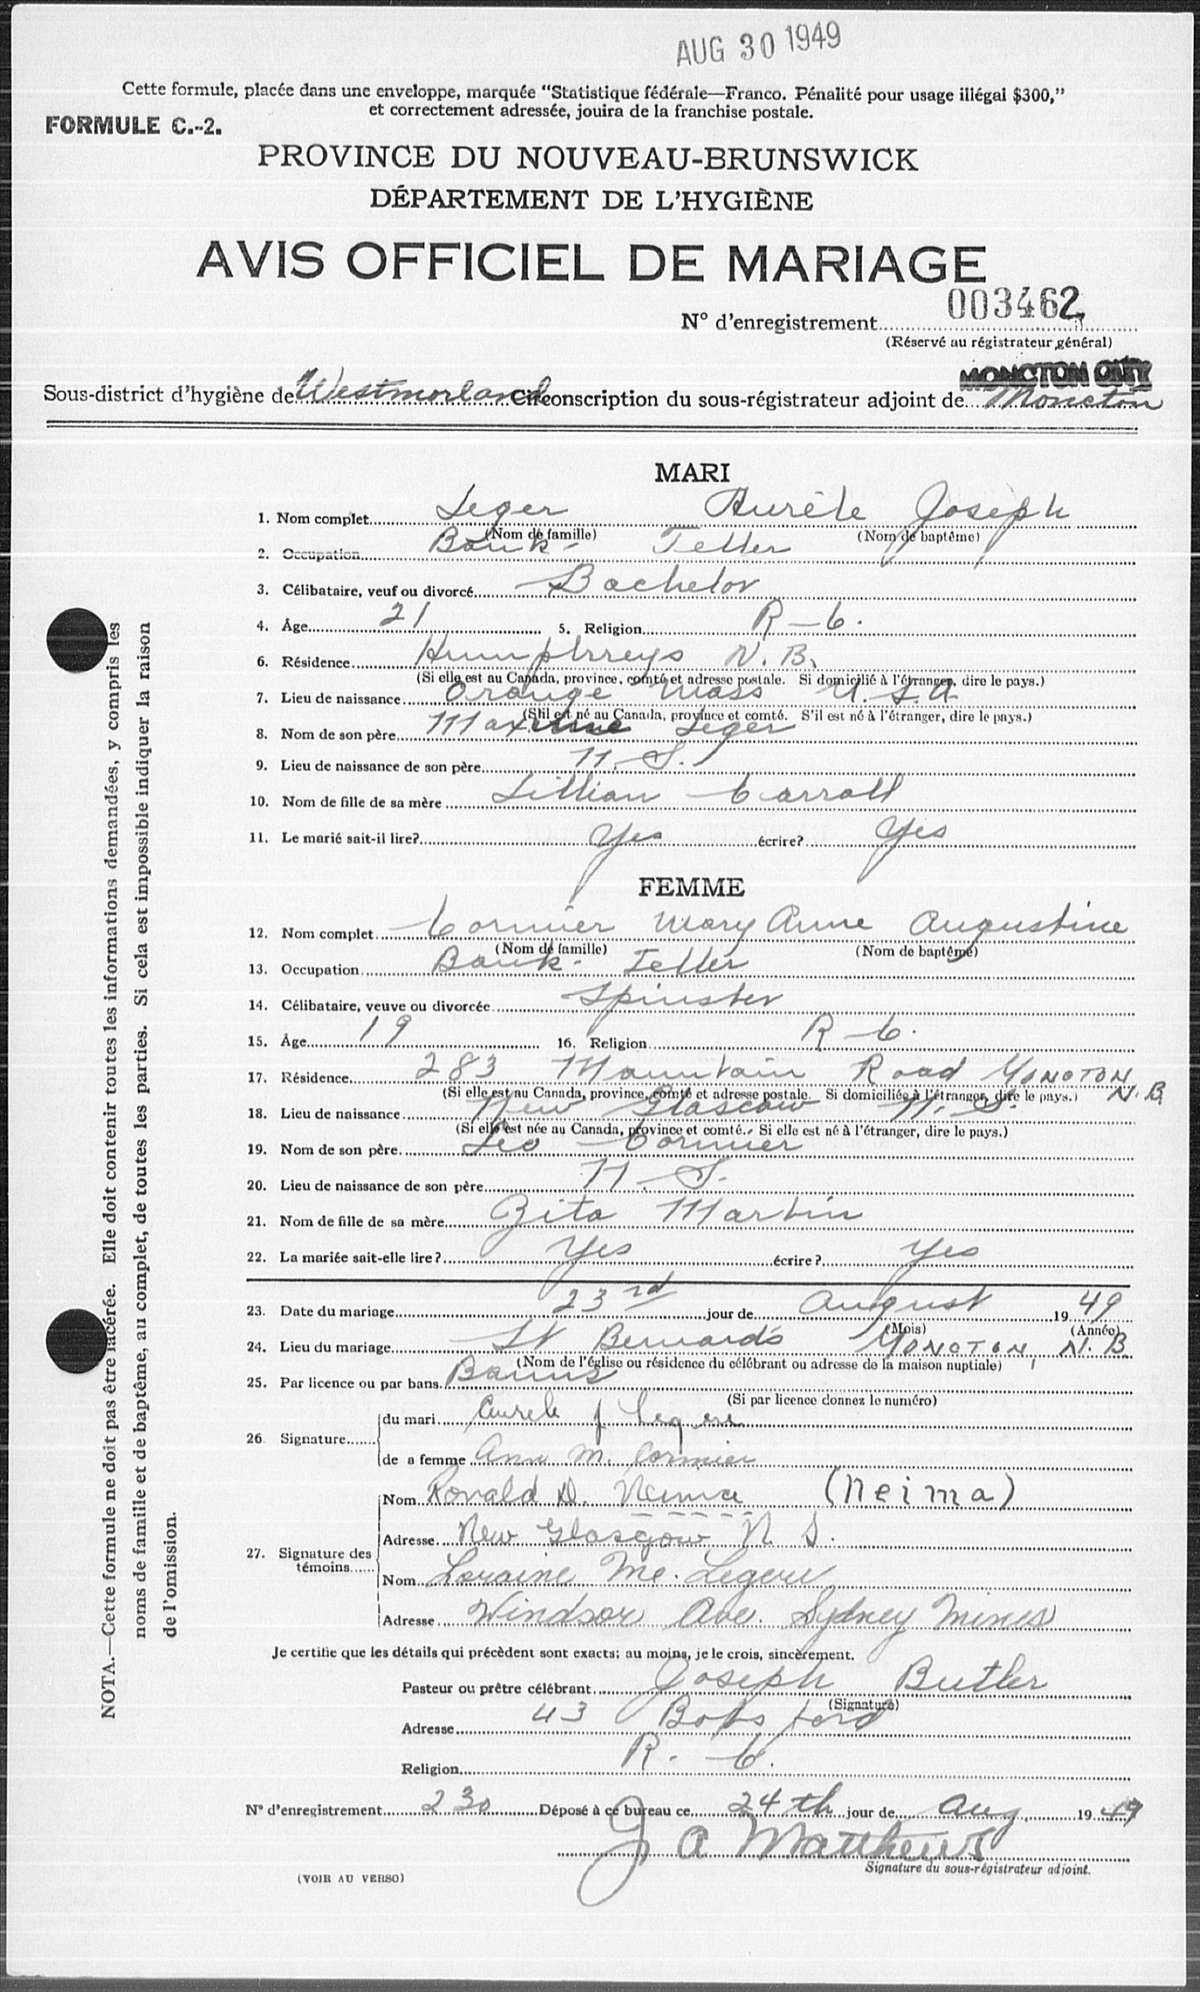 AUG 30 1949
Cette formule, placée dans une enveloppe, marquée "Statistique fédérale—Franco. Pénalité pour usage illégal $300,"
et correctement adressée, jouira de la franchise postale.
FORMULE C.-2.
PROVINCE DU NOUVEAU-BRUNSWICK
DÉPARTEMENT DE L'HYGIÈNE
AVIS OFFICIEL DE MARIAGE
N° d'enregistrement 003462
(Réservé au régistrateur général)
MONCTON CITY
Sous-district d'hygiène de Westmorland Circonscription du sous-régistrateur adjoint de Moncton
MARI
1. Nom complet Leger Aurèle Joseph
(Nom de famille) (Nom de baptême)
2. Occupation Bank-Teller
3. Célibataire, veuf ou divorcé Bachelor
4. Âge 21 5. Religion R-C.
6. Résidence Humphreys N.B.
(Si elle est au Canada, province, comté et adresse postale. Si domicilié à l'étranger, dire le pays.)
7. Lieu de naissance Orange Mass U.S.A
(S'il est né au Canada, province et comté. S'il est né à l'étranger, dire le pays.)
8. Nom de son père Maxime Leger
9. Lieu de naissance de son père N.S.
10. Nom de fille de sa mère Lillian Carroll
11. Le marié sait-il lire? Yes écrire? Yes
FEMME
12. Nom complet Cormier Mary Anne Augustine
(Nom de famille) (Nom de baptême)
13. Occupation Bank-Teller
14. Célibataire, veuve ou divorcée Spinster
15. Âge 19 16. Religion R-C.
17. Résidence 283 Mountain Road MONCTON N.B.
(Si elle est au Canada, province, comté et adresse postale. Si domiciliée à l'étranger, dire le pays.)
18. Lieu de naissance New Glascow N.S.
(Si elle est née au Canada, province et comté. Si elle est né à l'étranger, dire le pays.)
19. Nom de son père Leo Cormier
20. Lieu de naissance de son père N.S.
21. Nom de fille de sa mère Zita Martin
22. La mariée sait-elle lire? Yes écrire? Yes
23. Date du mariage 23rd jour de August 1949
(Mois) (Année)
24. Lieu du mariage St Bernards MONCTON, N.B
(Nom de l'église ou résidence du célébrant ou adresse de la maison nuptiale)
25. Par licence ou par bans Banns
(Si par licence donnez le numéro)
26 Signature du mari Aurele J Legere
de a femme Ann M. Cormier
27. Signature des témoins Nom Ronald D. Neima (Neima)
Adresse New Glasgow N S.
Nom Loraine Mc. Legere
Adresse Windsor Ave. Sydney Mines
Je certifie que les détails qui précèdent sont exacts; au moins, je le crois, sincèrement.
Pasteur ou prêtre célébrant Joseph Butler
(Signature)
Adresse 43 Botsford
Religion R.-C.
N° d'enregistrement 230 Déposé à ce bureau ce 24th jour de Aug, 1949
J A Matthews
Signature du sous-régistrateur adjoint.
(VOIR AU VERSO)
NOTA.—Cette formule ne doit pas être lacérée. Elle doit contenir toutes les informations demandées, y compris les
noms de famille et de baptême, au complet, de toutes les parties. Si cela est impossible indiquer la raison
de l'omission.